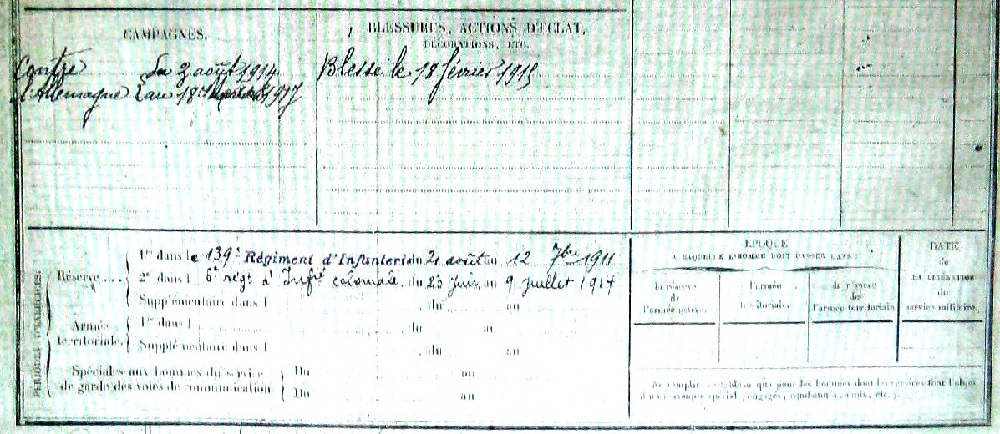 CAMPAGNES.
BLESSURES, ACTIONS D'ÉCLAT,
DÉCORATIONS, ETC.
Contre Du 2 août 1914
l'Allemagne au 18 1917
Blessé le 18 février 1915
PÉRIODES D'EXERCICES.
Réserve....
1re dans le 139e Régiment d'Infanterie du 21 août au 12 7bre 1911
2e dans l 6e régt d' Infrie coloniale, du 23 juin au 9 juillet 1917
Supplémentaire dans l du au
Armée territoriale.
1re dans l du au
Supplémentaire dans l du au
Spéciales aux hommes du service
de garde des voies de communication
Du au
Du au
ÉPOQUE
À LAQUELLE L'HOMME DOIT PASSER DANS :
la réserve
de
l'armée active.
l'armée
territoriale.
la réserve
de
l'armée territoriale.
DATE
de
LA LIBÉRATION
du
service militaire.